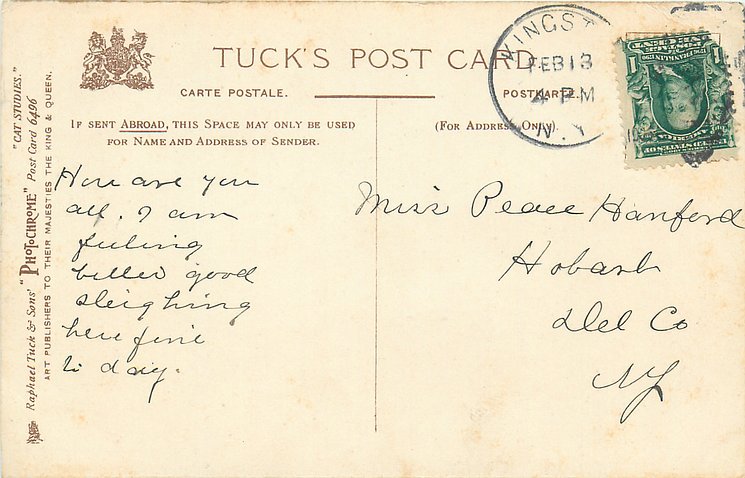 TUCK'S POST CARD
CARTE POSTALE. POSTKARTE.
IF SENT ABROAD, THIS SPACE MAY ONLY BE USED
FOR NAME AND ADDRESS OF SENDER.
(FOR ADDRESS ONLY).
KINGST
FEB 13
4 PM
N.Y.
1
1
"CAT STUDIES."
Raphael Tuck & Sons' "PHOTOCHROME" Post Card 6496
ART PUBLISHERS TO THEIR MAJESTIES THE KING & QUEEN.
How are you
all. I am
feeling
better good
sleighing
here fine
to day.
Miss Peace Hanford
Hobart
Del Co
NY